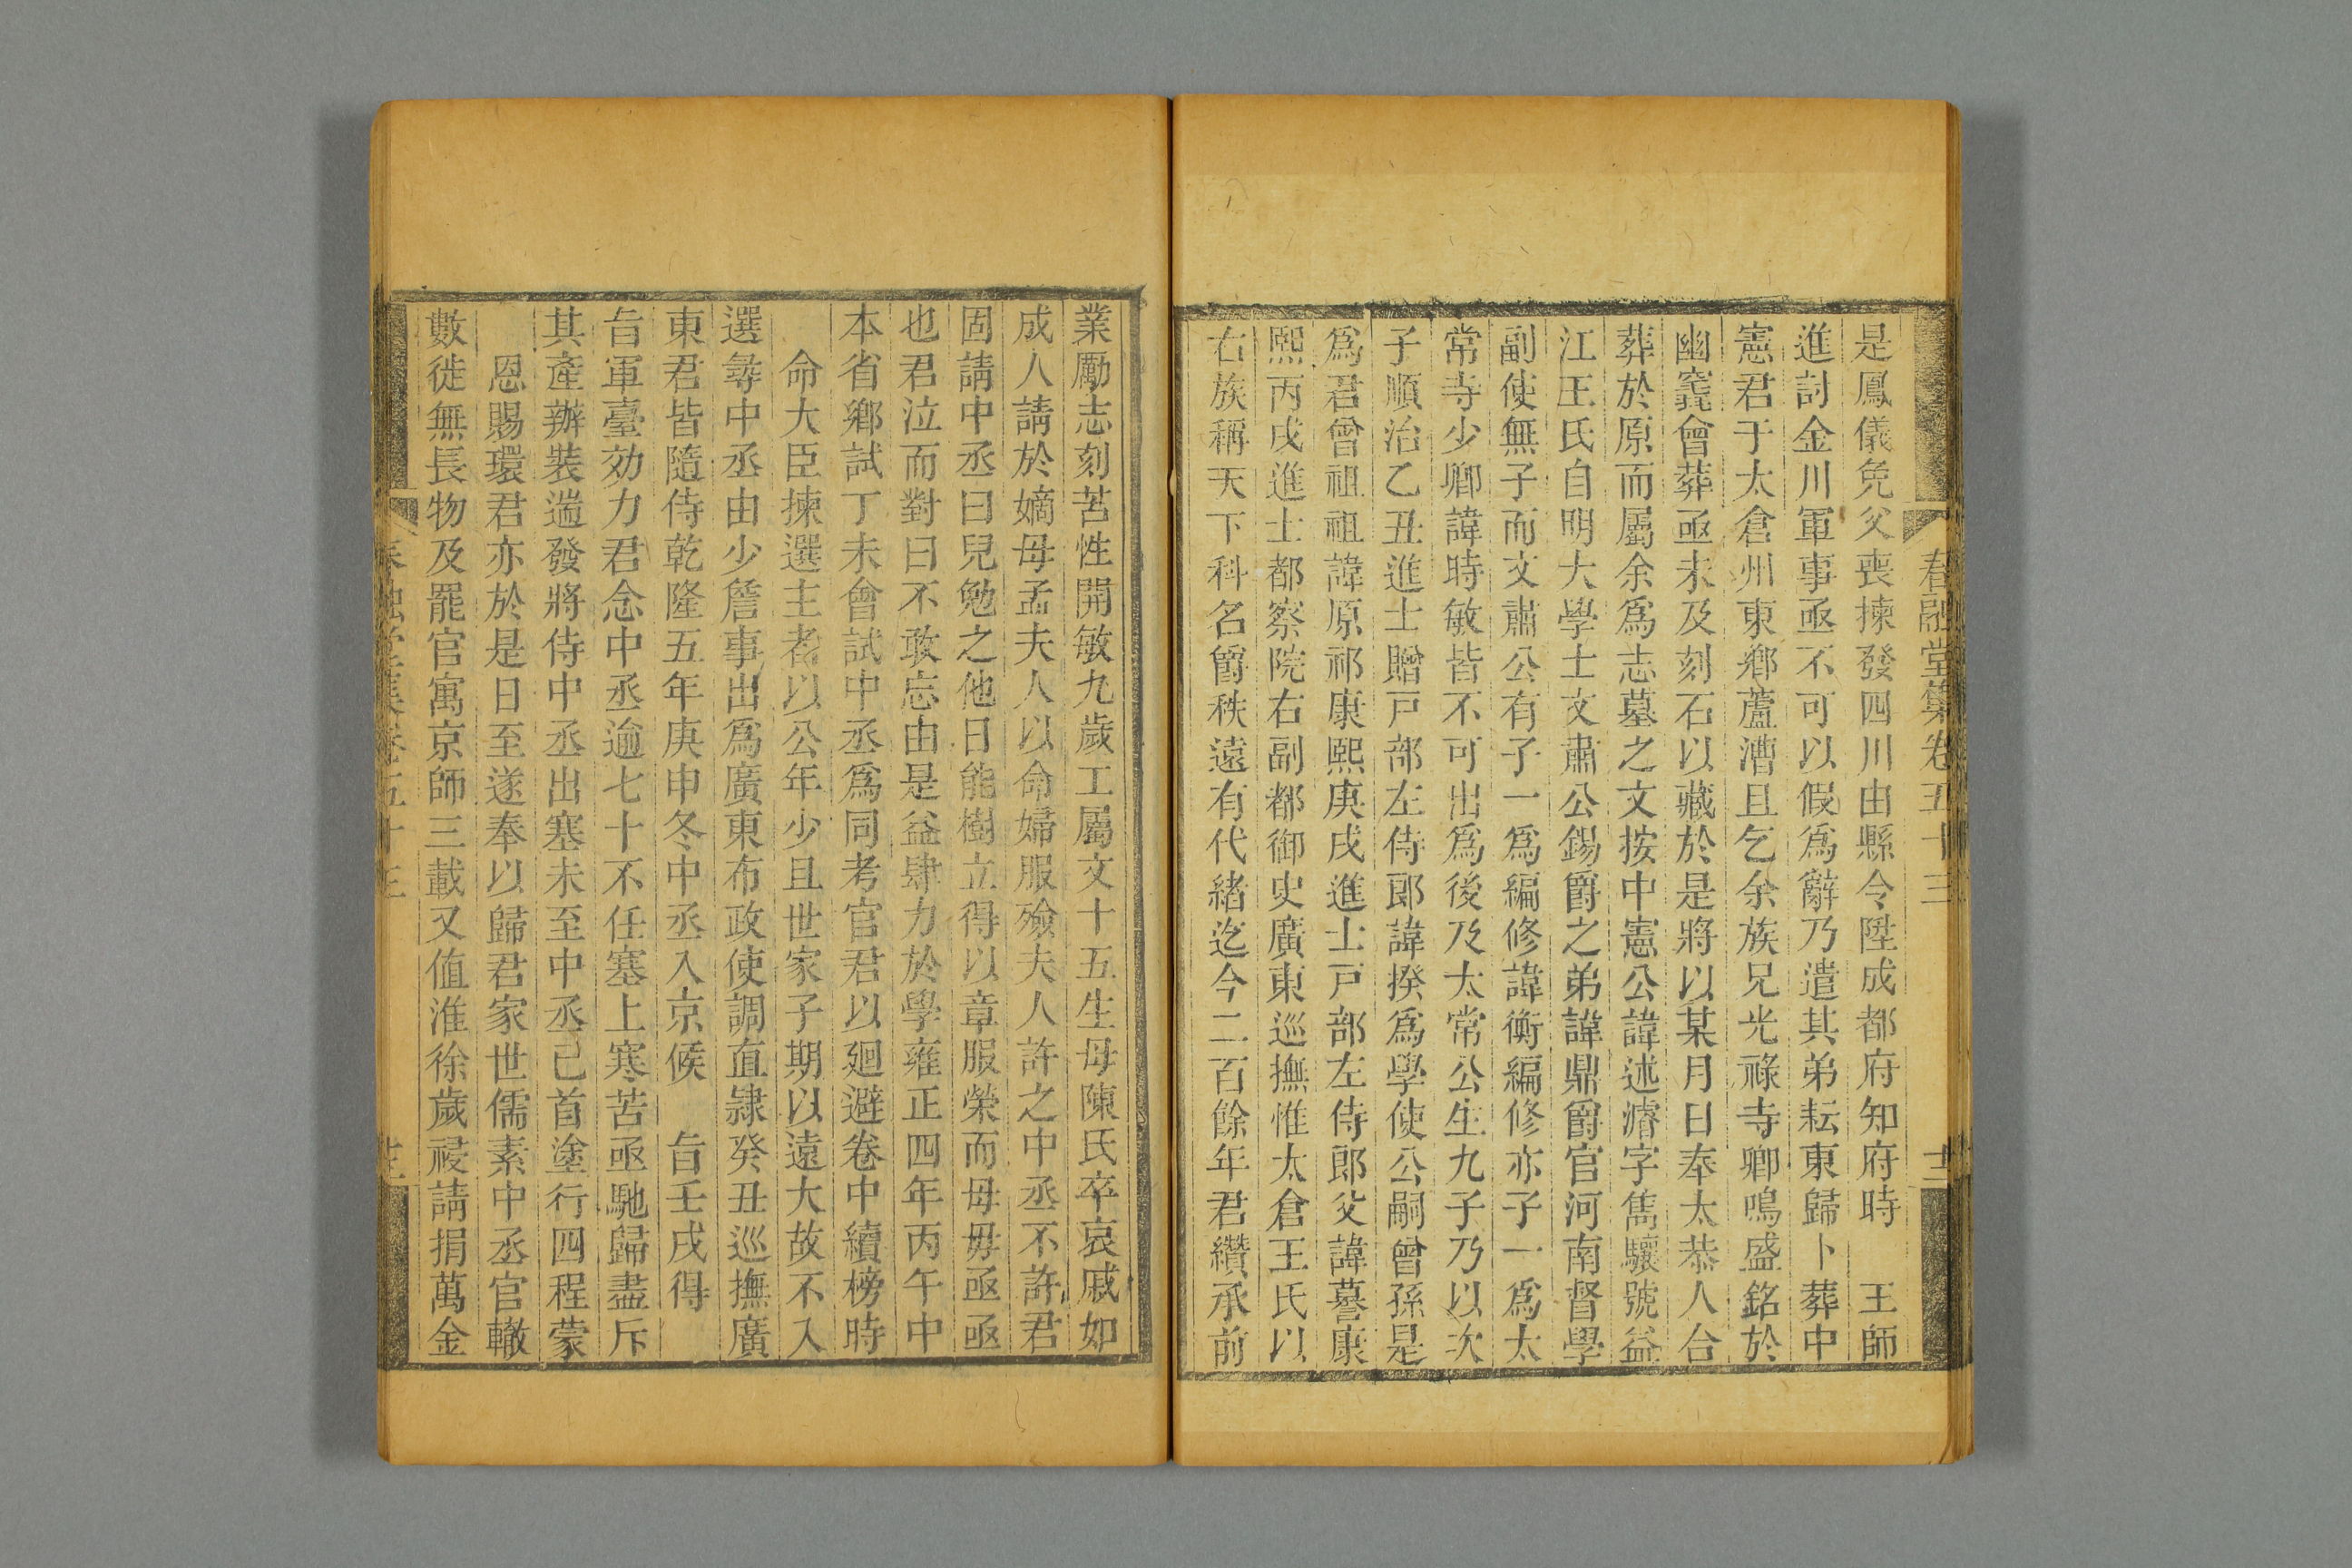 春融堂集卷五十三
十二
是鳳儀免父喪揀發四川由縣令陞成都府知府時　王師
進討金川軍事亟不可以假爲辭乃遣其弟耘東歸卜葬中
憲君于太倉州東鄉蘆漕且乞余族兄光祿寺卿鳴盛銘於
幽竁會葬亟未及刻石以藏於是將以某月日奉太恭人合
葬於原而屬余爲志墓之文按中憲公諱述濬字雋驤號益
江王氏自明大學士文肅公錫爵之弟諱鼎爵官河南督學
副使無子而文肅公有子一爲編修諱衡編修亦子一爲太
常寺少卿諱時敏皆不可出爲後及太常公生九子乃以次
子順治乙丑進士贈戸部左侍郎諱揆爲學使公嗣曾孫是
爲君曾祖祖諱原祁康熙庚戌進士戸部左侍郎父諱謩康
熙丙戌進士都察院右副都御史廣東巡撫惟太倉王氏以
右族稱天下科名爵秩遠有代緒迄今二百餘年君纘承前
業勵志刻苦性開敏九歲工屬文十五生母陳氏卒哀戚如
成人請於嫡母孟夫人以命婦服殮夫人許之中丞不許君
固請中丞曰兒勉之他日能樹立得以章服榮而母毋亟亟
也君泣而對曰不敢忘由是益肆力於學雍正四年丙午中
本省鄉試丁未會試中丞爲同考官君以廻避卷中續榜時
命大臣揀選主者以公年少且世家子期以遠大故不入
選㝷中丞由少詹事出爲廣東布政使調直隸癸丑巡撫廣
東君皆隨侍乾隆五年庚申冬中丞入京候　旨壬戌得
旨軍臺効力君念中丞逾七十不任塞上寒苦亟馳歸盡斥
其產辦裝遄發將侍中丞出塞未至中丞已首塗行四程蒙
恩賜環君亦於是日至遂奉以歸君家世儒素中丞官轍
數徙無長物及罷官寓京師三載又値淮徐歲祲請捐萬金